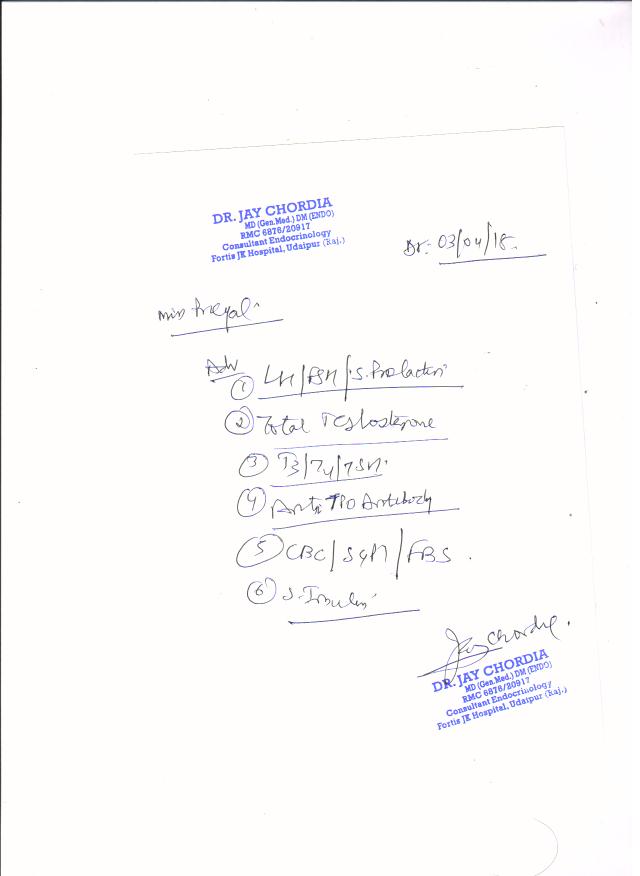 DR. JAY CHORDIA
MD (Gen.Med.) DM (ENDO)
RMC 6876/20917
Consultant Endocrinology
Fortis JK Hospital, Udaipur (Raj.)
Dt: 03/04/18.
Miss
Adv
① LH/FSH/S. Prolactin
② Total Testosterone
③ T3/T4/TSH
④ Anti TPO Antibody
⑤ CBC / / FBS.
⑥ S. Insulin
Jay Chordia.
DR. JAY CHORDIA
MD (Gen.Med.) DM (ENDO)
RMC 6876/20917
Consultant Endocrinology
Fortis JK Hospital, Udaipur (Raj.)